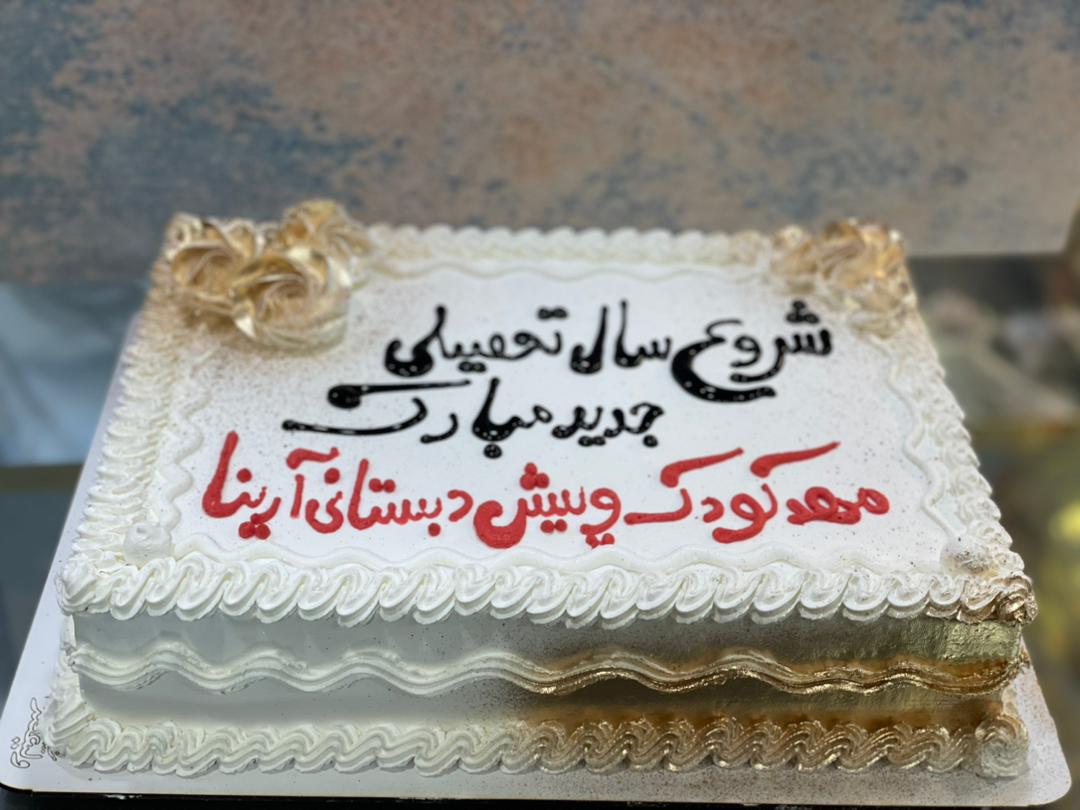 شروع سال تحصیلی
جدید مبارک
مهد کودک و پیش دبستانی آرینا